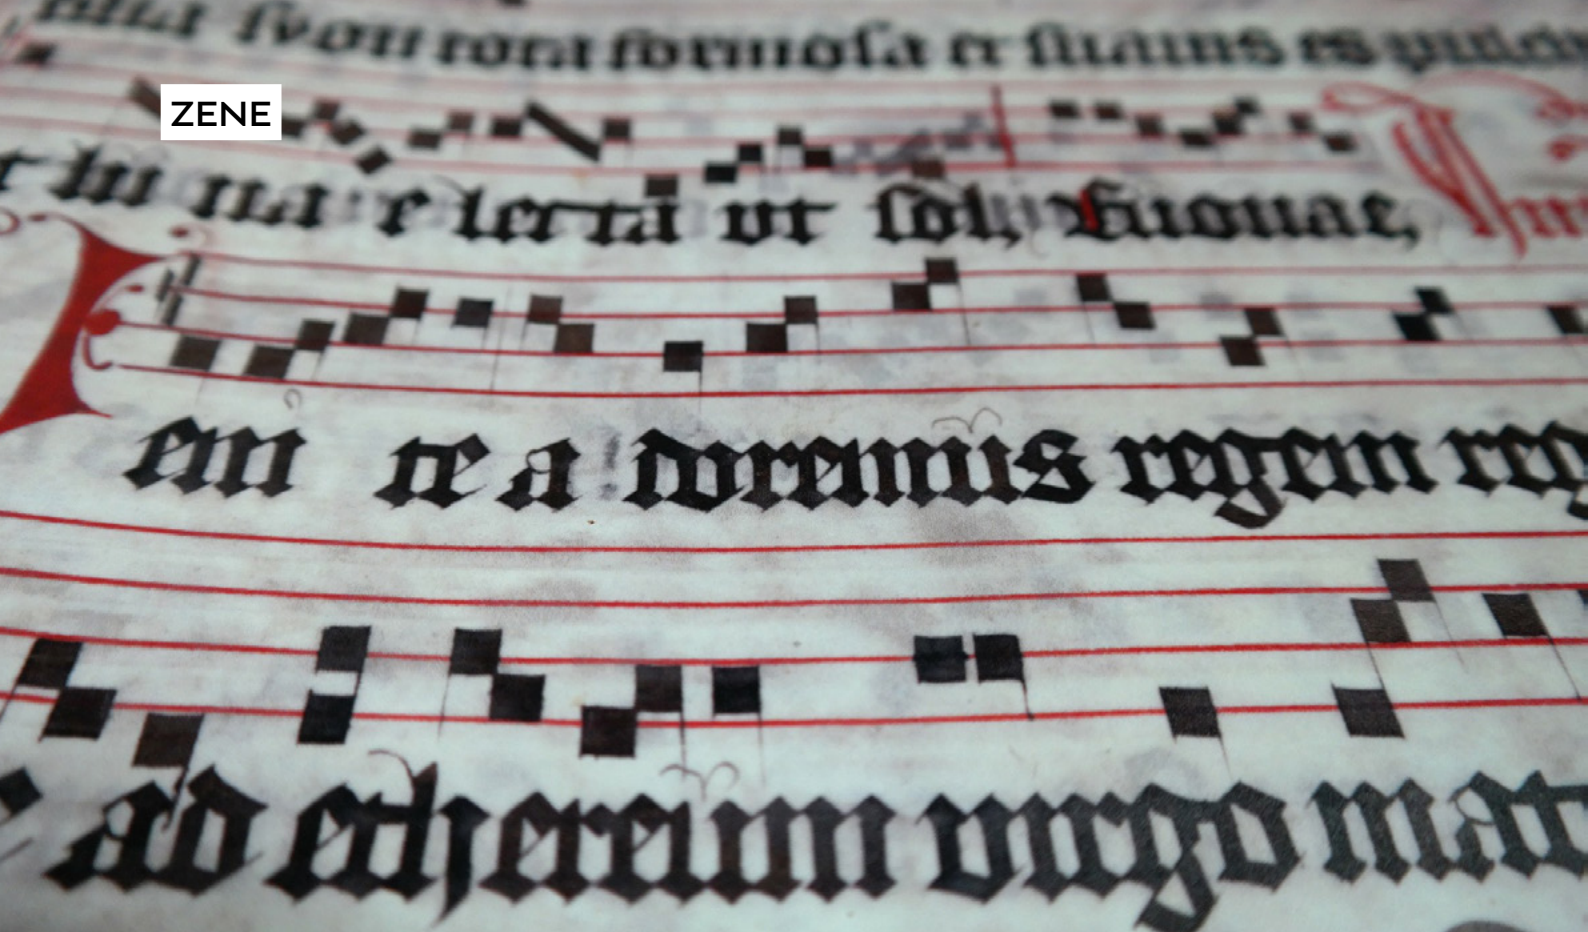 syon tota formosa et suauis es
ZENE
lu na e lecta ut sol, Euouae,
I
em te a doremus regem reg
ad ethereum virgo mat